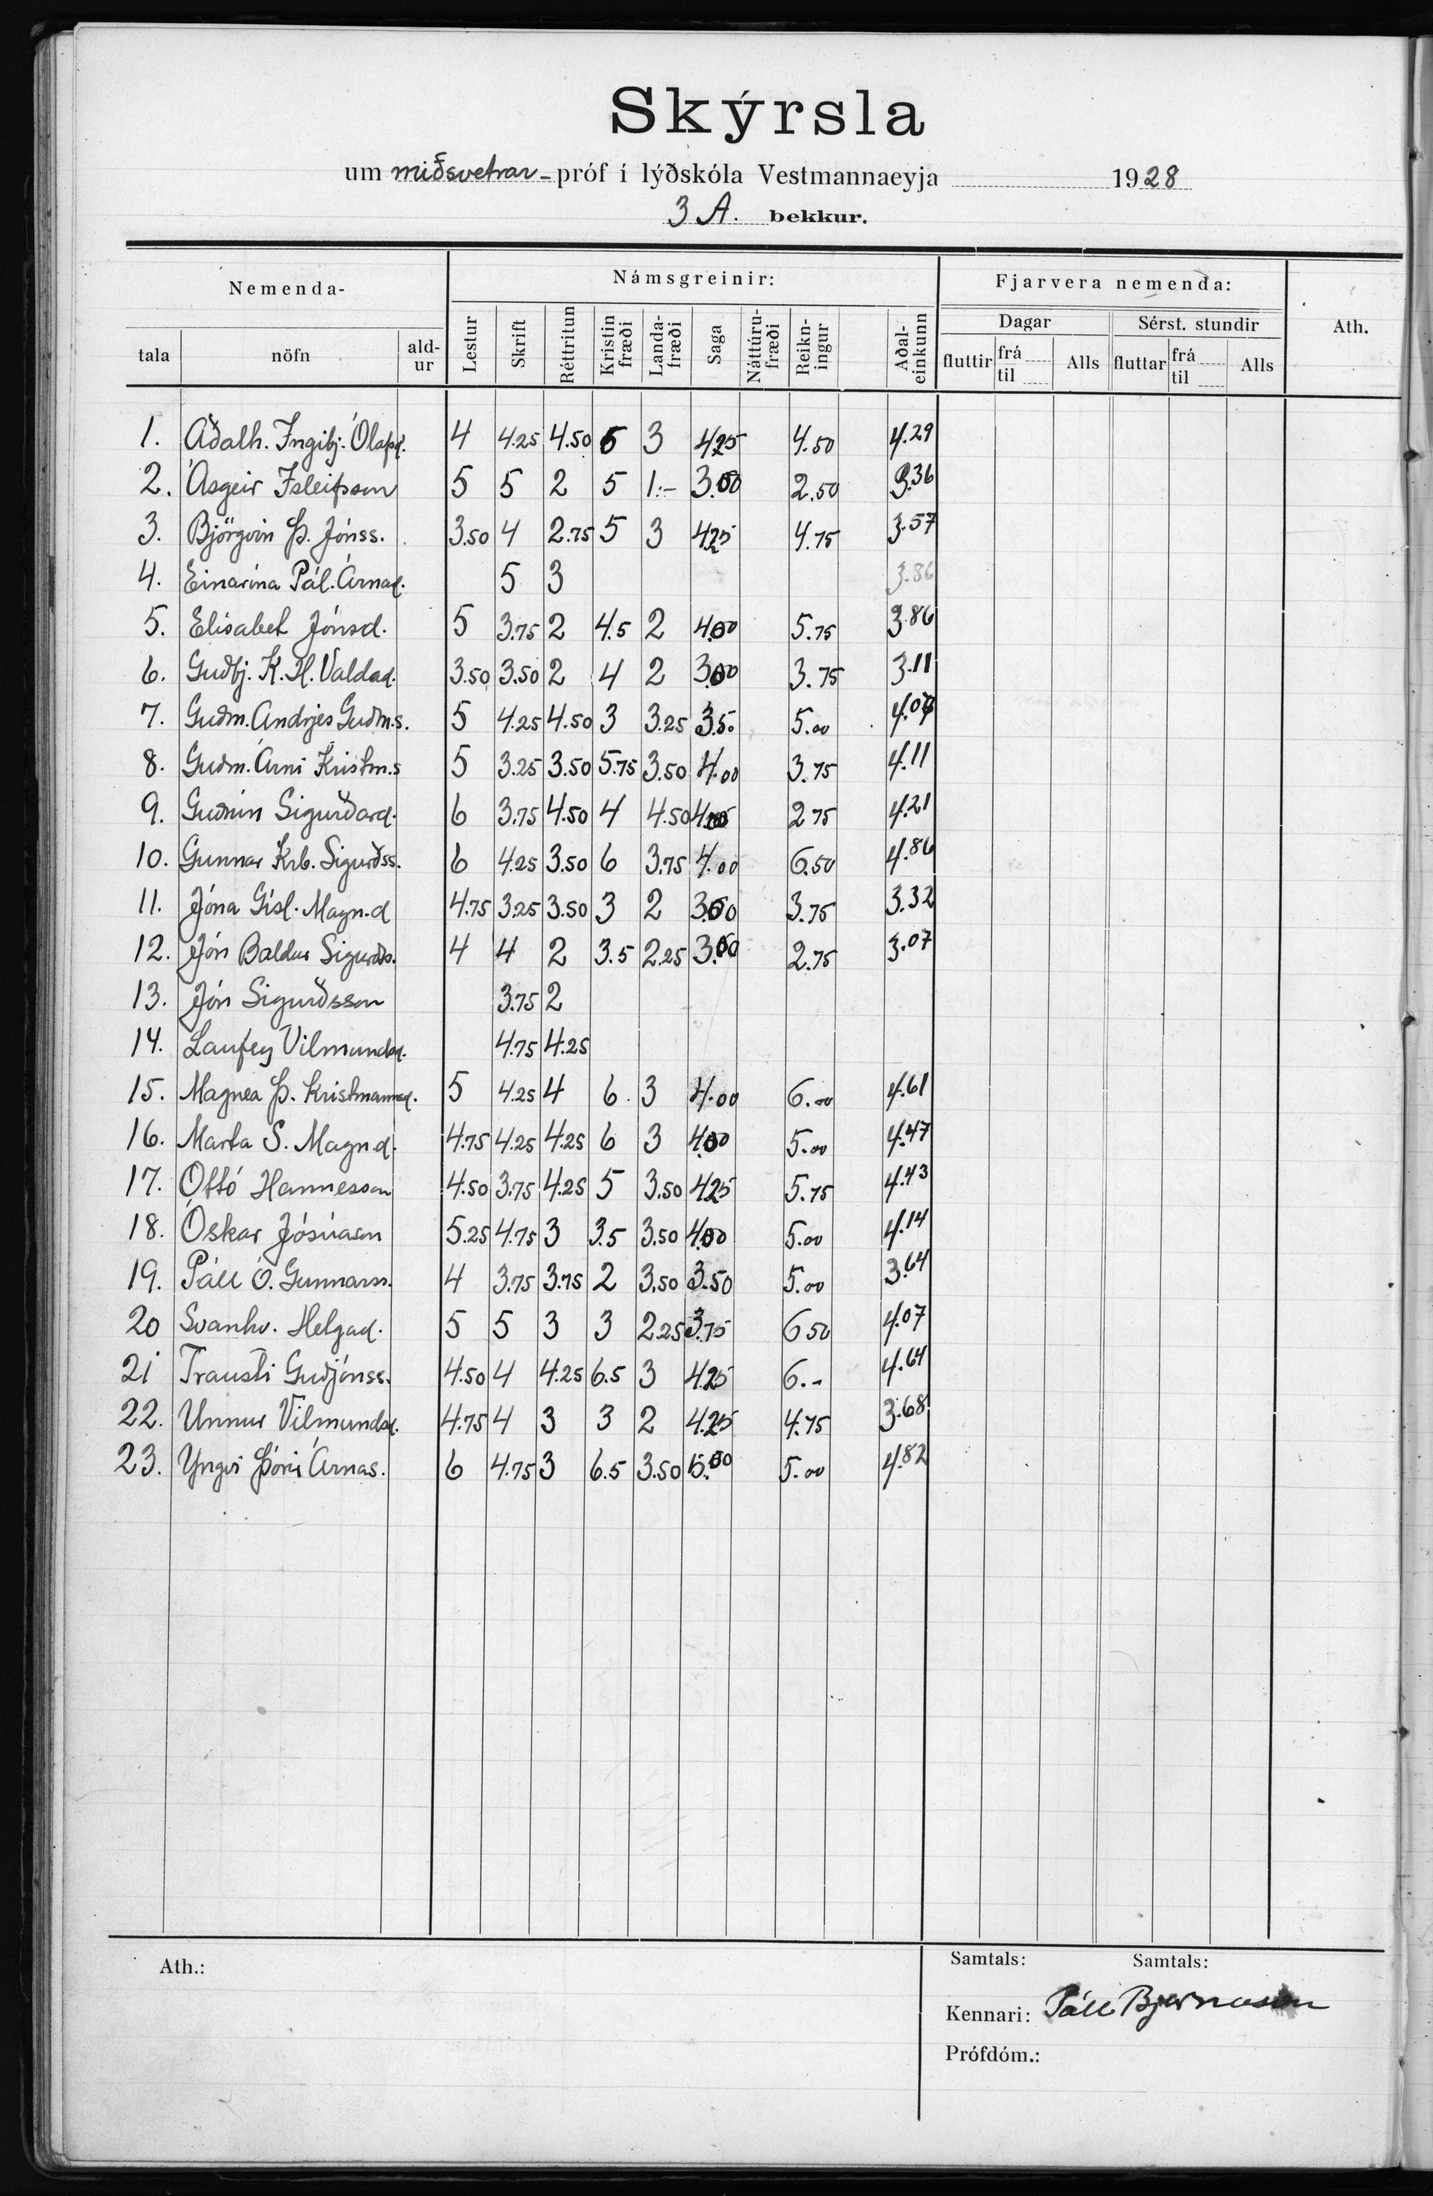 Skýrsla
um miðsvetrar-próf í lýðskóla Vestmannaeyja 1928
3 A. bekkur.
Nemenda- Námsgreinir: Fjarvera nemenda: Ath.
Dagar Sérst. stundir
tala nöfn ald-ur Lestur Skrift Réttritun Kristinfræði Landafræði Saga Náttúru-fræði Reikn-ingur Aðal-einkunn fluttir frá til Alls fluttar frá til Alls
1. Aðalh. Ingibj. Ólafsd. 4 4.25 4.50 5 3 4.25 4.50 4.29
2. Ásgeir Ísleifsson 5 5 2 5 1.- 3.00 2.50 3.36
3. Björgvin Þ. Jónss. 3.50 4 2.75 5 3 4.25 4.75 3.57
4. Einarína Pál. Árnad. 5 3 3.86
5. Elísabet Jónsd. 5 3.75 2 4.5 2 4.00 5.75 3.86
6. Guðbj. K. H. Valdad. 3.50 3.50 2 4 2 3.00 3.75 3.11
7. Guðm. Andrjes Guðm.s. 5 4.25 4.50 3 3.25 3.50 5.00 4.07
8. Guðm. Árni Kristm.s 5 3.25 3.50 5.75 3.50 4.00 3.75 4.11
9. Guðrún Sigurðard. 6 3.75 4.50 4 4.50 4.00 2.75 4.21
10. Gunnar Krb. Sigurðss. 6 4.25 3.50 6 3.75 4.00 6.50 4.86
11. Jóna Gísl. Magn.d 4.75 3.25 3.50 3 2 3.00 3.75 3.32
12. Jón Baldur Sigurðs. 4 4 2 3.5 2.25 3.00 2.75 3.07
13. Jón Sigurðsson 3.75 2
14. Laufey Vilmundsd. 4.75 4.25
15. Magnea Þ. Kristmannsd. 5 4.25 4 6. 3 4.00 6.00 4.61
16. Marta S. Magn.d. 4.75 4.25 4.25 6 3 4.00 5.00 4.47
17. Ottó Hannesson 4.50 3.75 4.25 5 3.50 4.25 5.75 4.43
18. Óskar Jósúason 5.25 4.75 3 3.5 3.50 4.00 5.00 4.14
19. Páll Ó. Gunnarss. 4 3.75 3.75 2 3.50 3.50 5.00 3.64
20 Svanhv. Helgad. 5 5 3 3 2.25 3.75 6 50 4.07
21 Trausti Guðjónss. 4.50 4 4.25 6.5 3 4.25 6.- 4.64
22. Unnur Vilmundsd. 4.75 4 3 3 2 4.25 4.75 3.68
23. Yngvi Þórir Árnas. 6 4.75 3 6.5 3.50 5.00 5.00 4.82
Ath.: Samtals: Samtals:
Kennari: Páll Bjarnason
Prófdóm.: